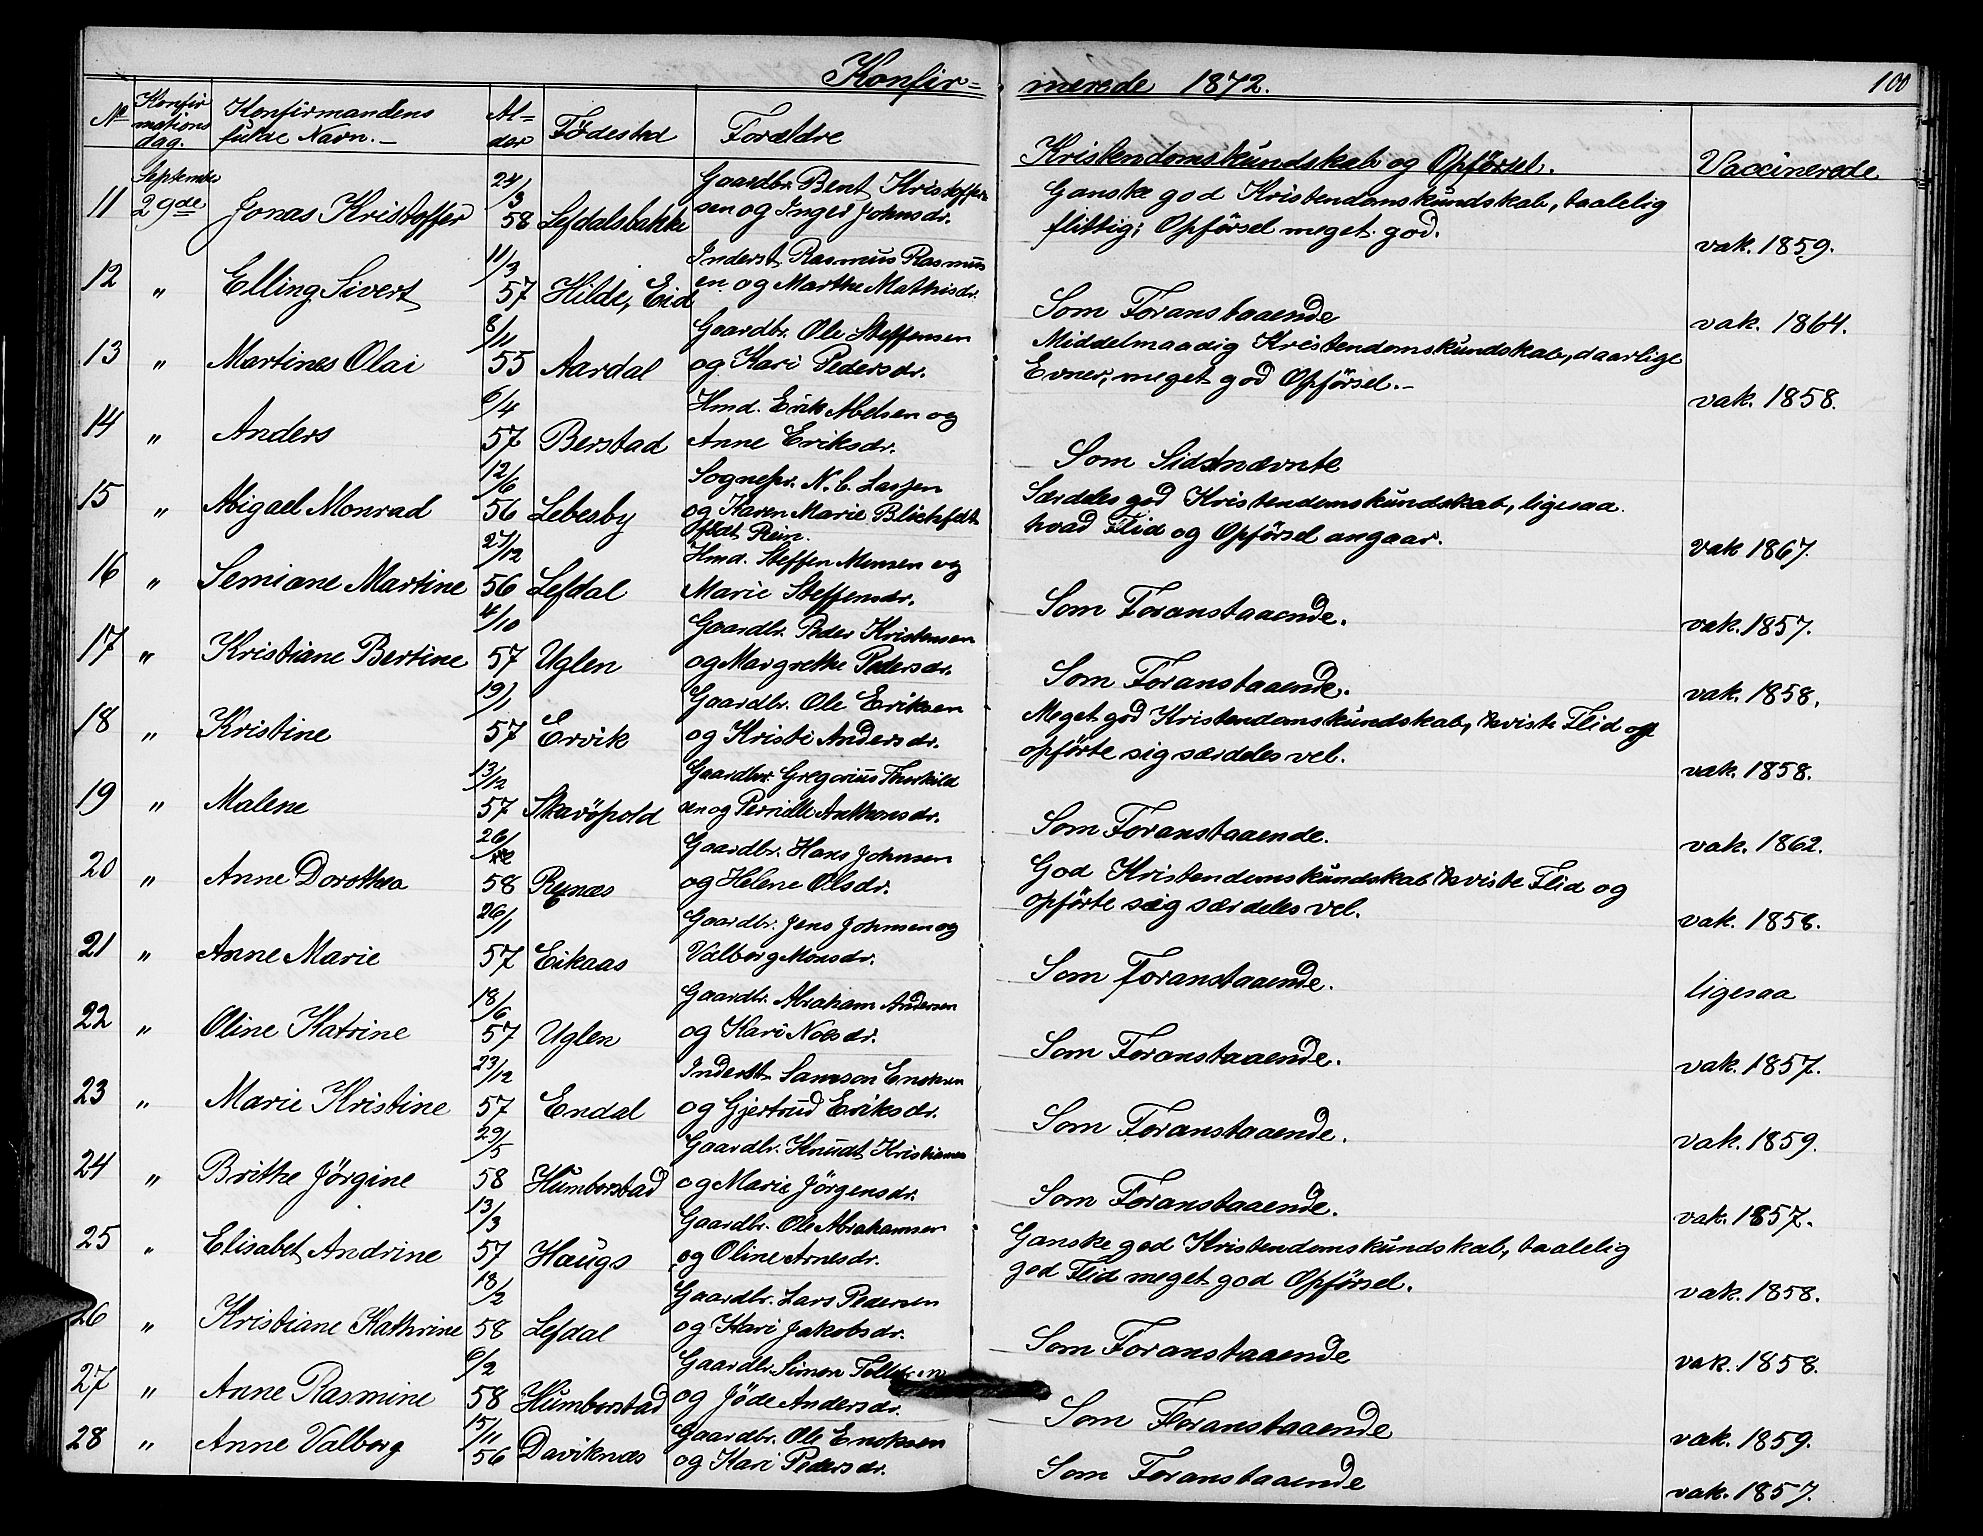 Konfir-
merede 1872.
100
No
Konfir
mations
dag.
Konfirmandens
fulde Navn.
Al-
der
Fødested
Forældre
Kristendomskundskab og Opførsel.
Vaccinerede
11
Septembr
29de
Jonas Kristoffer
24/3
58
Lefdalsbakke
Gaardbr. Bent Kristoffer
sen og Inger Johnsdr.
Ganske god Kristendomskundskab, taalelig
flittig; Opførsel meget god.
vak. 1859.
12
"
Elling Sivert
11/3
57
Hilde, Eid
Inderst Rasmus Rasmus
en og Marthe Mathisdr.
Som Foranstaaende
vak. 1864.
13
"
Martines Olai
8/11
55
Aardal
Gaardbr. Ole Steffensen
og Kari Pedersdr.
Middelmaadig Kristendomskundskab, daarlige
Evner, meget god Opførsel.
vak. 1858.
14
"
Anders
6/4
57
Berstad
Hmd. Erik Abelsen og
Anne Eriksdr.
Som Sidstnævnte
15
"
Abigael Monrad
12/6
56
Lebesby
Sognepr. N. C. Lassen
og Karen Marie Blichfeldt
født Rein.
Særdeles god Kristendomskundskab, ligesaa
hvad Flid og Opførsel angaar.
vak 1867.
16
"
Semiane Martine
27/12
56
Lefdal
Hmd. Steffen Monsen og
Marie Steffensdr.
Som Foranstaaende.
vak. 1857.
17
"
Kristiane Bertine
4/10
57
Uglen
Gaardbr. Peder Kristensen
og Margrethe Pedersdr.
Som Foranstaaende.
vak. 1858.
18
"
Kristine
19/1
57
Ervik
Gaardbr. Ole Eriksen
og Kristi Andersdr.
Meget god Kristendomskundskab, beviste Flid og
opførte sig særdeles vel.
vak. 1858.
19
"
Malene
13/12
57
Skavøpold
Gaardbr. Gregorius Therkild
sen og Pernille Anthonsdr.
Som Foranstaaende.
vak. 1862.
20
"
Anne Dorothea
26/
58
Rynæs
Gaardbr. Hans Johnsen
og Helene Olsdr.
God Kristendomskundskab beviste Flid og
opførte sig særdeles vel.
vak. 1858.
21
"
Anne Marie
26/1
57
Eikaas
Gaardbr. Jens Johnsen og
Valborg Monsdr.
Som foranstaaende.
ligesaa
22
"
Oline Katrine
18/6
57
Uglen
Gaardbr. Abraham Andersen
og Kari Noesdr.
Som Foranstaaende.
vak. 1857.
23
"
Marie Kristine
23/12
57
Endal
Inderst Samson Enoksen
og Gjertrud Eriksdr.
Som Foranstaaende.
vak. 1859.
24
"
Brithe Jørgine
29/5
58
Humborstad
Gaardbr. Knudt Kristiansen
og Marie Jørgensdr.
Som Foranstaaende.
vak. 1857.
25
"
Elisabet Andrine
13/3
57
Haugs
Gaardbr. Ole Abrahamsen
og Oline Arnesdr.
Ganske god Kristendomskundskab, taalelig
god Flid meget god Opførsel.
vak. 1858.
26
"
Kristiane Kathrine
18/2
58
Lefdal
Gaardbr. Lars Pedersen
og Kari Jakobsdr.
Som Foranstaaende
vak. 1858.
27
"
Anne Rasmine
6/2
58
Humborstad
Gaardbr. Simon
og Jøde Andersdr.
Som Foranstaaende
vak. 1859.
28
"
Anne Valborg
15/11
56
Daviknæs
Gaardbr. Ole Enoksen
og Kari Pedersdr.
Som Foranstaaende
vak. 1857.